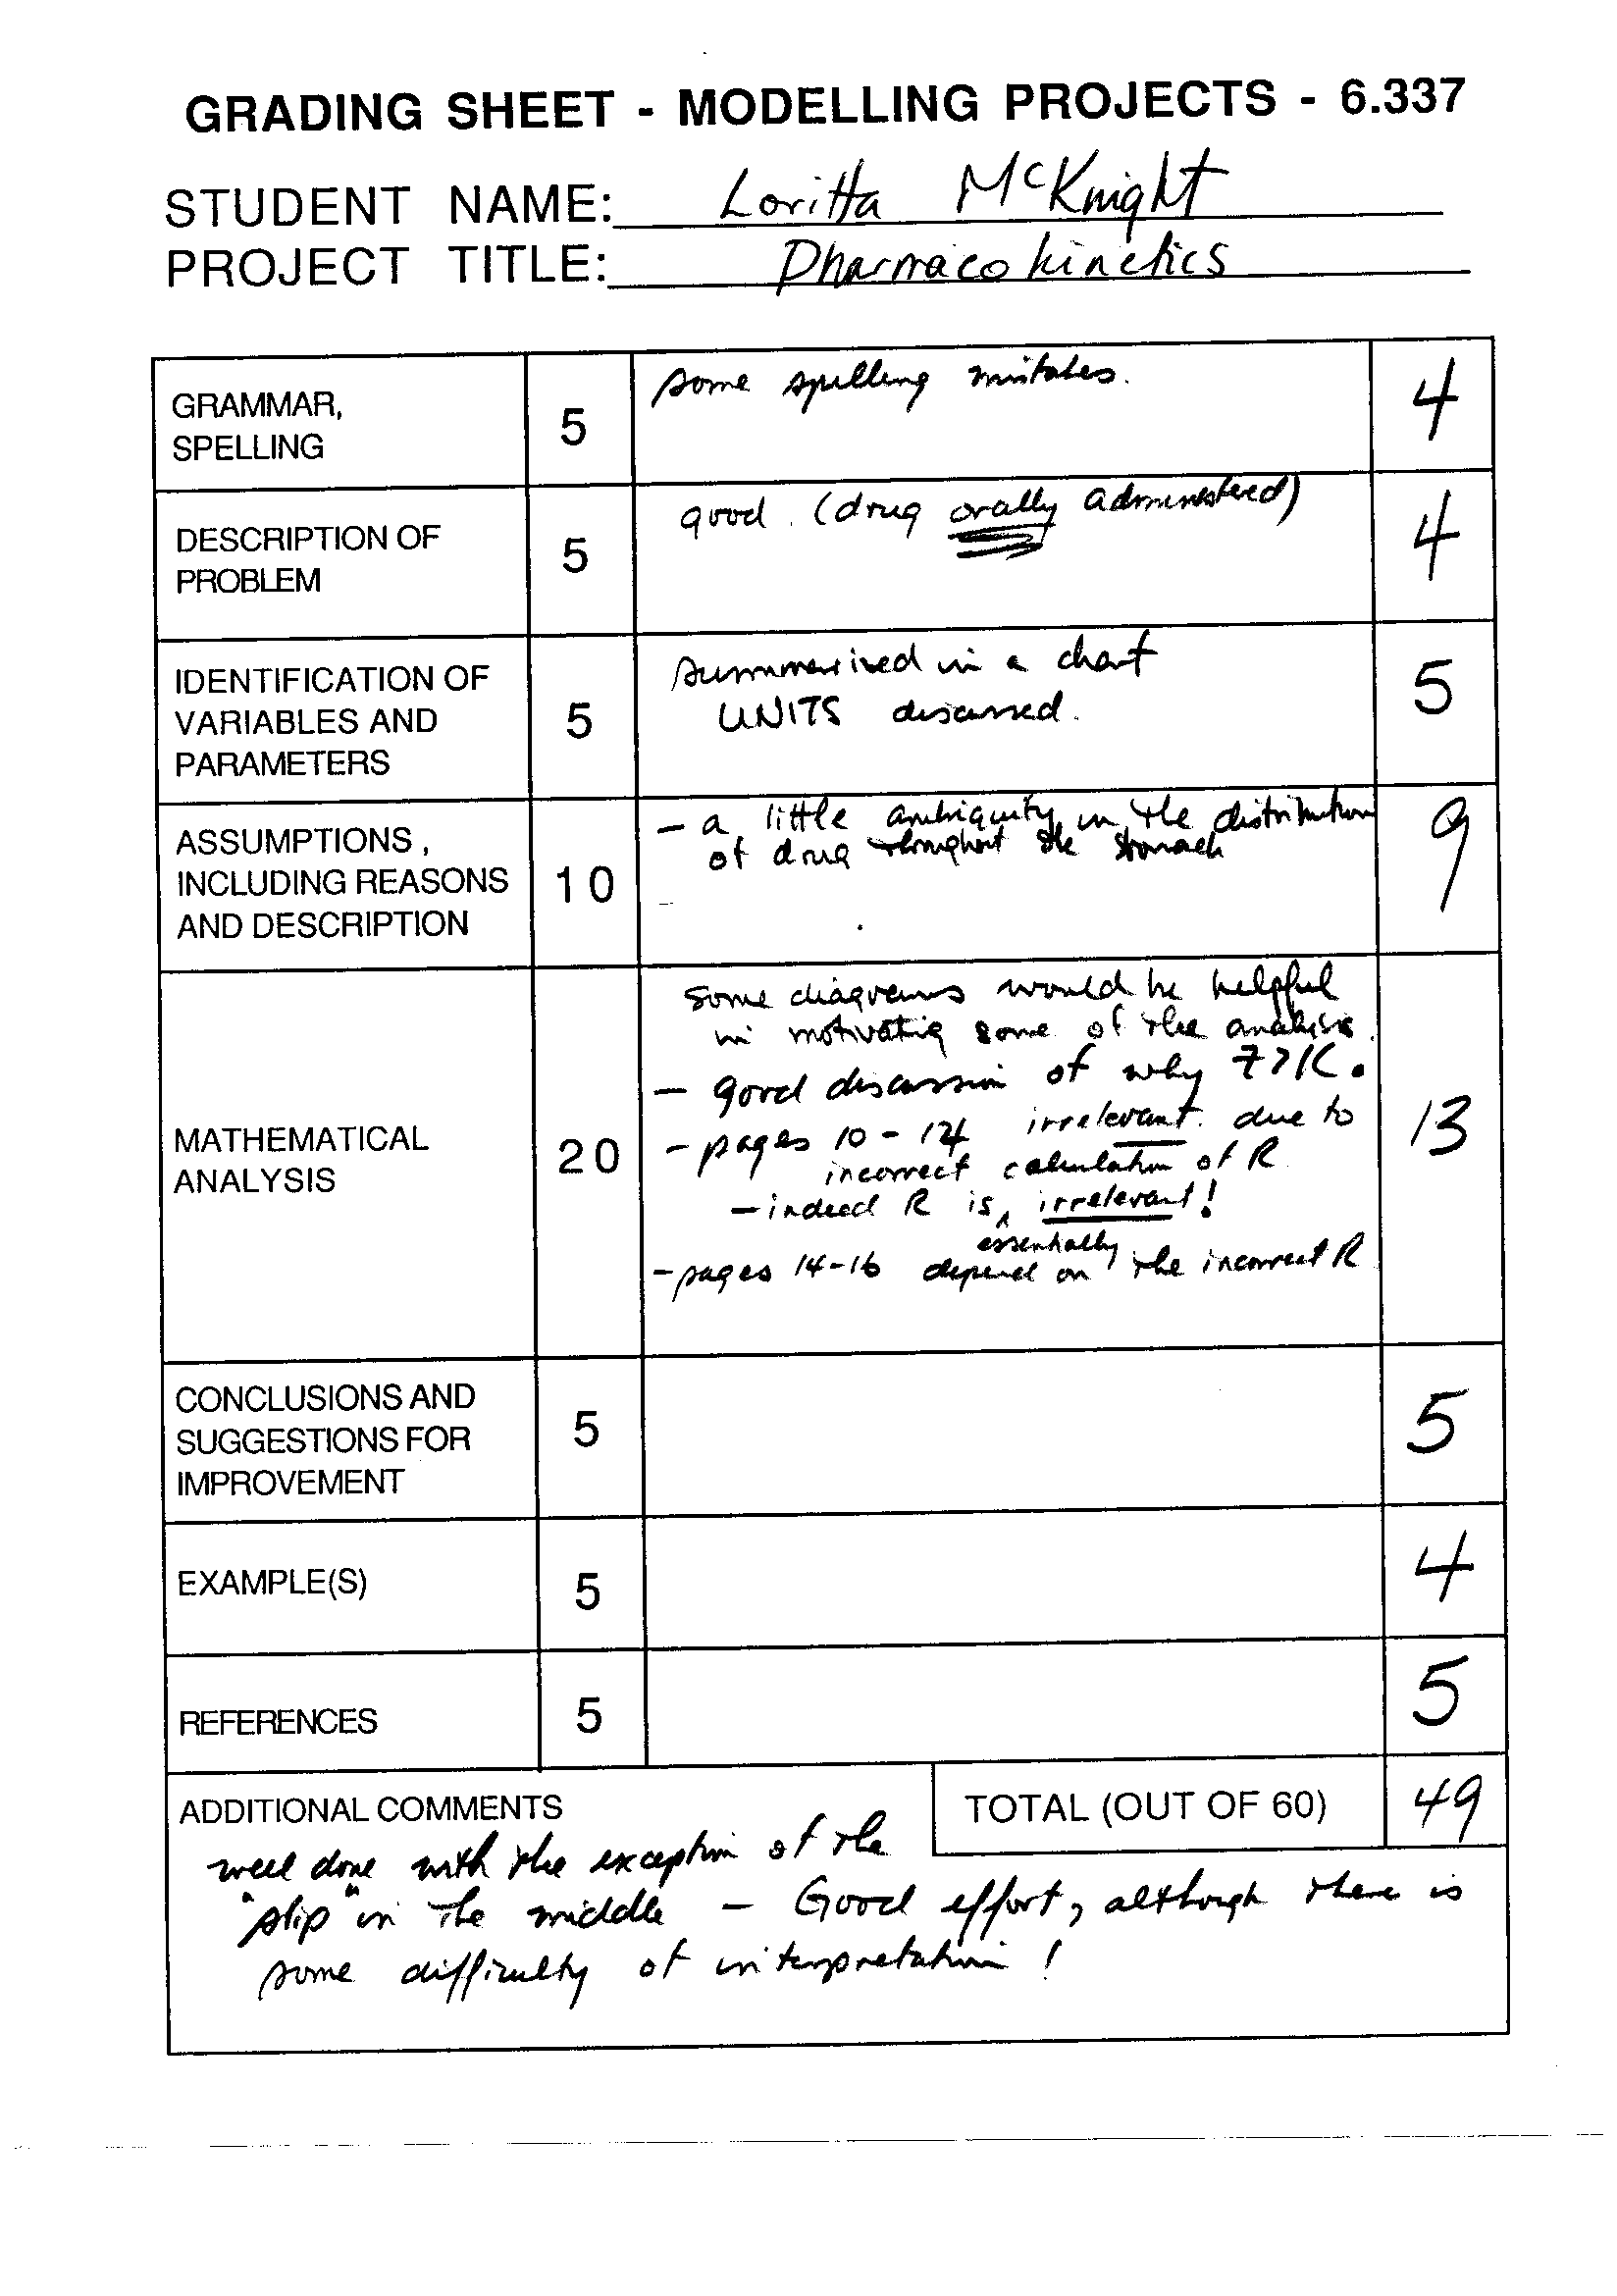 GRADING SHEET - MODELLING PROJECTS - 6.337
STUDENT NAME: Loritta McKnight
PROJECT TITLE: Pharmacokinetics
GRAMMAR,
SPELLING
5
some spelling mistakes.
4
DESCRIPTION OF
PROBLEM
5
good. (drug orally administered)
4
IDENTIFICATION OF
VARIABLES AND
PARAMETERS
5
summarized in a chart
UNITS discussed.
5
ASSUMPTIONS,
INCLUDING REASONS
AND DESCRIPTION
10
- a little ambiguity in the distribution
of drug throughout the stomach
-
9
MATHEMATICAL
ANALYSIS
20
Some diagrams would be helpful
in motivating some of the analysis.
- good discussion of why
- pages 10 - 14 irrelevant due to
incorrect calculation of R
- indeed R is essentially irrelevant!
- pages 14-16 depend on the incorrect R
13
CONCLUSIONS AND
SUGGESTIONS FOR
IMPROVEMENT
5
5
EXAMPLE(S)
5
4
REFERENCES
5
5
ADDITIONAL COMMENTS
TOTAL (OUT OF 60)
49
well done with the exception of the
"slip" in the middle - Good effort, although there is
some difficulty of interpretation!